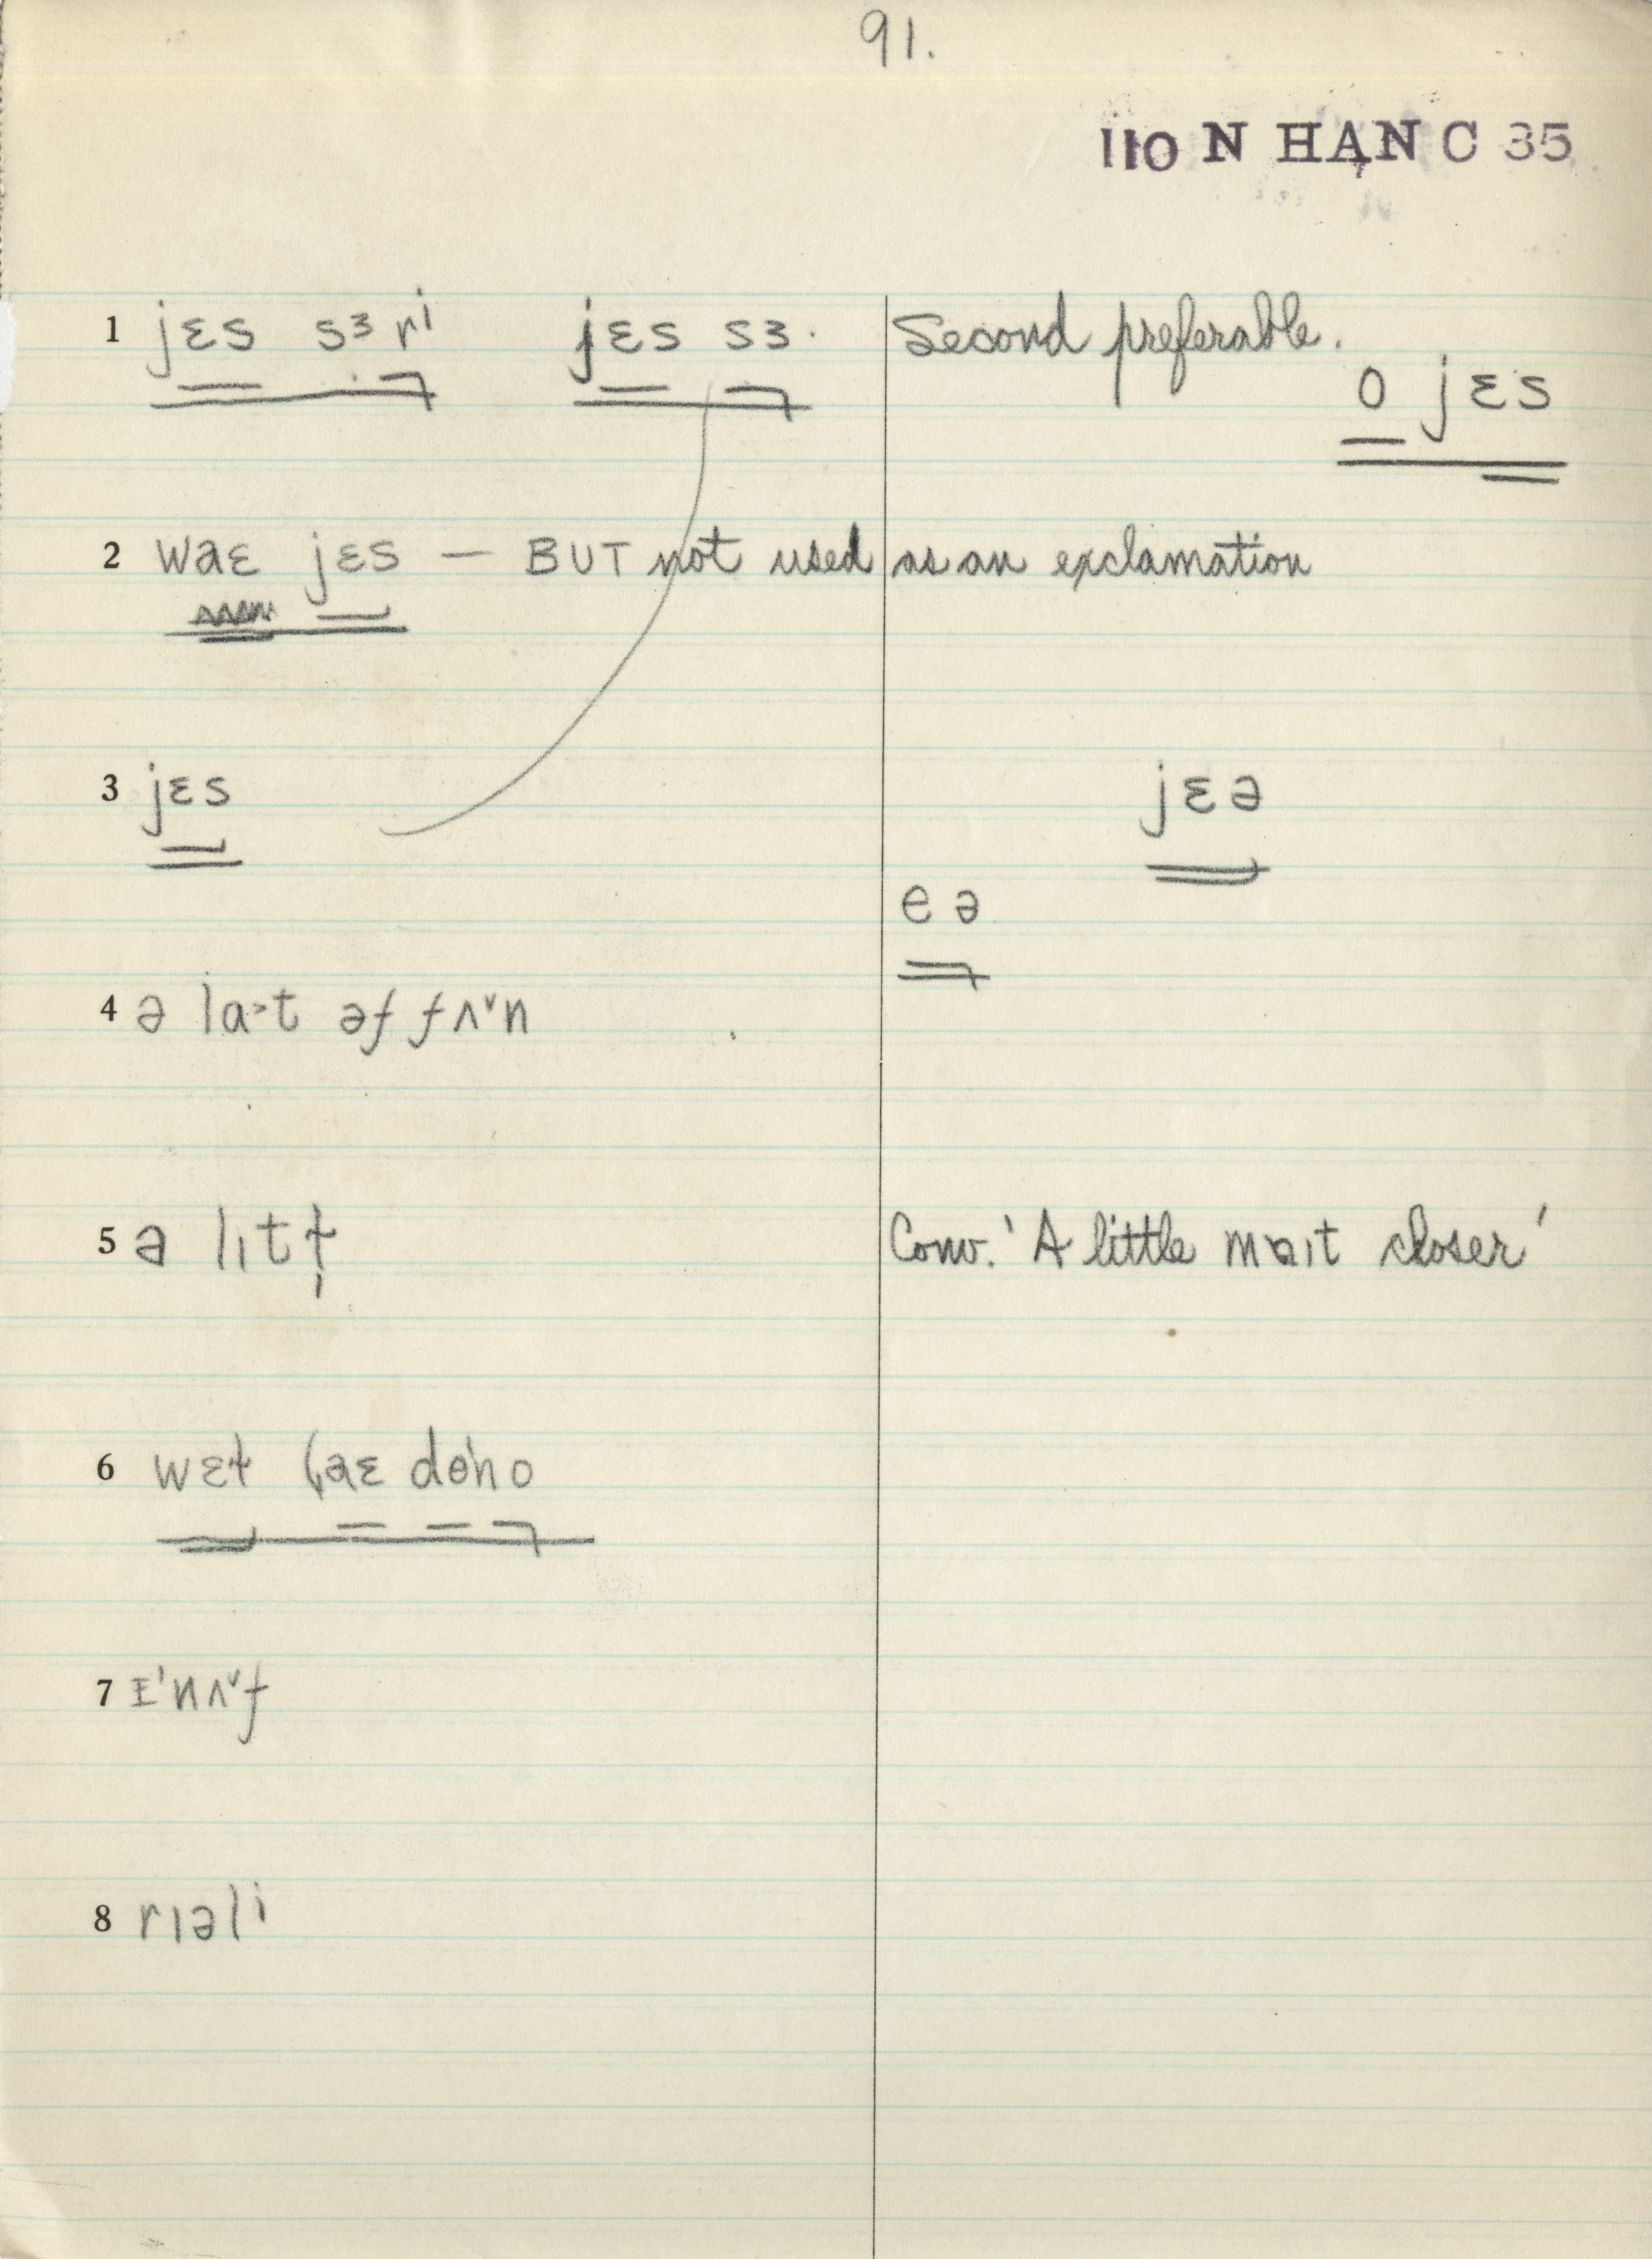 91.
110 N HAN C 35
1 jɛs sɜri jɛs sɜ. Second preferable.
o jɛs
2 waɛ jɛs — BUT not used as an exclamation
3 jɛs jɛə
eə
4 ə la>t əf fʌ˅n
5 ə lɪtɫ̩ Conv. 'A little mɑɪt closer'
6 wɛɫ
7 ɪ'nʌ˅f
8 rɪəli